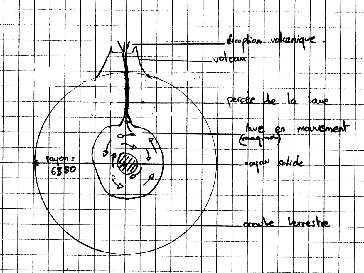 éruption volcanique
volcan
percée de la lave
lave en mouvement
(magma)
noyau solide
rayon =
6380
croûte terrestre